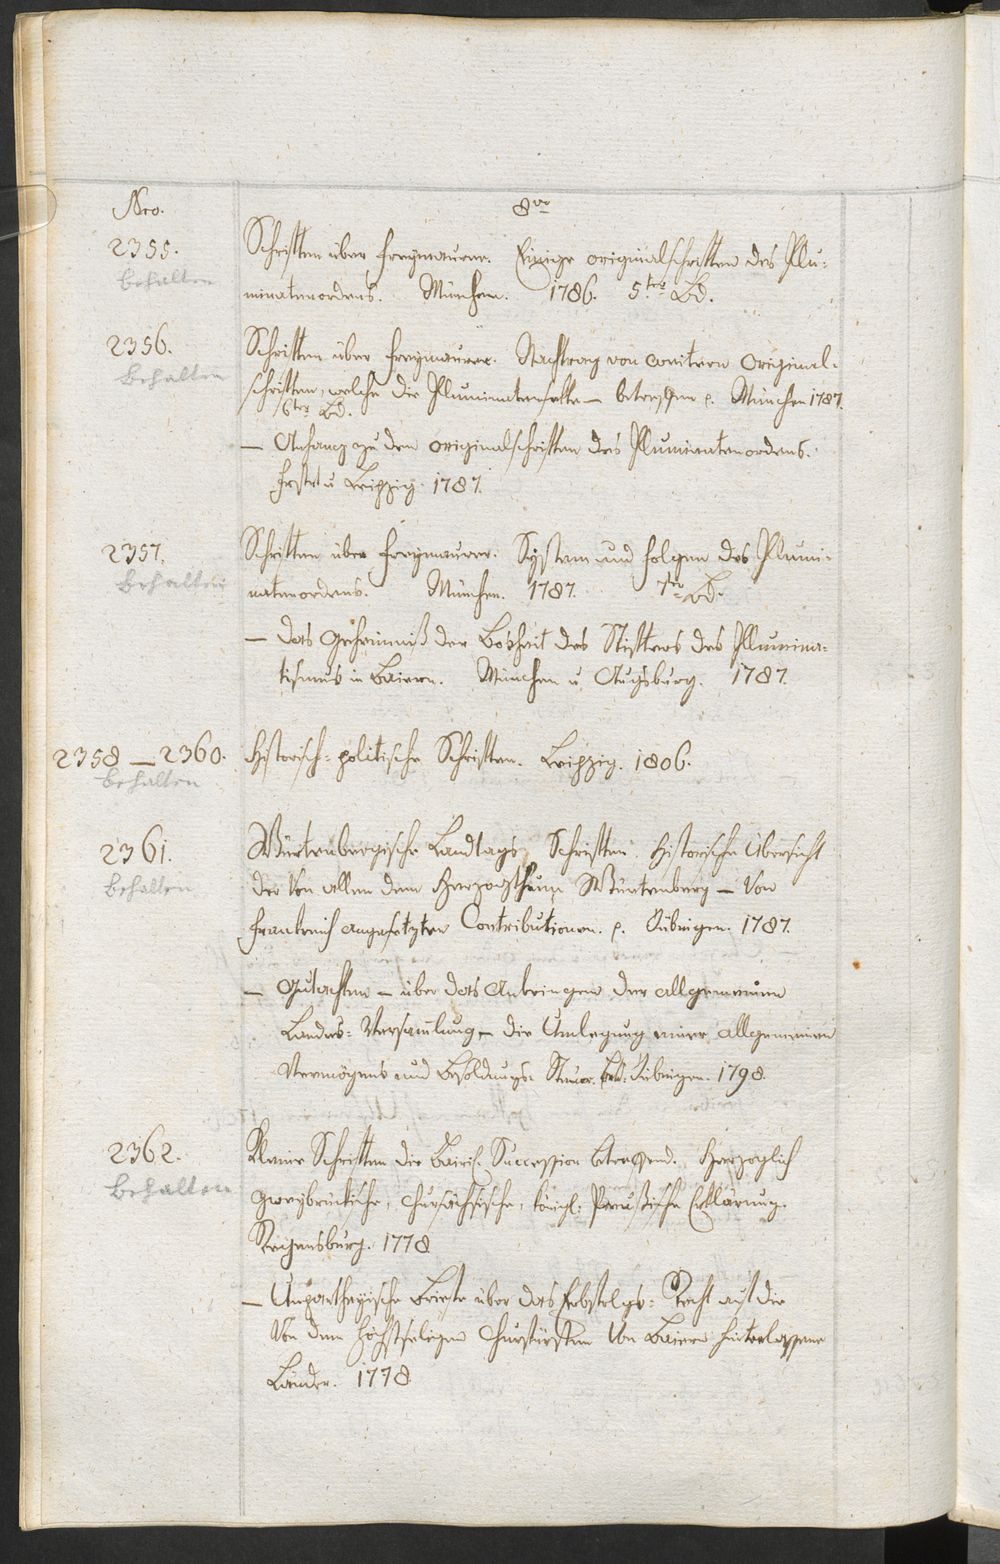 Nro. 8vo
2355. Schriften über Freymaurer. Einige originalschriften des Illu-
behalten
minatenordens. München. 1786. 5ter Bd.
2356. Schriften über Freymaurer. Nachtrag von weitern Original-
behalten
schriften, welche die Illuminatensekte – betreffen p. München 1787.
6ter Bd.
– Anhang zu den originalschriften des Illuminatenordens.
Frft u Leipzig. 1787.
2357. Schriften über Freymaurer. System und Folgen des Illumi-
behalten
natenordens. München. 1787. 7ter Bd.
– das Geheimniß der Bosheit des Stifters des Illumina-
tismus in Baiern. München u. Augsburg. 1787.
2358 – 2360. Historisch-politische Schriften. Leipzig. 1806.
behalten
2361. Würtenbergische Landtags Schriften. Historische Übersicht
behalten
der von allen dem Herzogthum Würtenberg – von
Frankreich angesetzten Contributionen. p. Tübingen. 1787.
– Gutachten – über das Anbringen der allgemeinen
Landes-Versammlung – die Umlegung einer allgemeinen
Vermögens und Besoldungs Steuer. Tübingen. 1798.
2362. Kleine Schriften die Bairis. Succession betreffend. Herzoglich
behalten
zweybrückische, Chursächsische, königl: Preußische Erklärung.
Regensburg. 1778
– Unpartheyische Briefe über das Erbfolgs-Recht auf die
von dem höchstseligen Churfürsten von Baiern hinterlassene
Länder. 1778